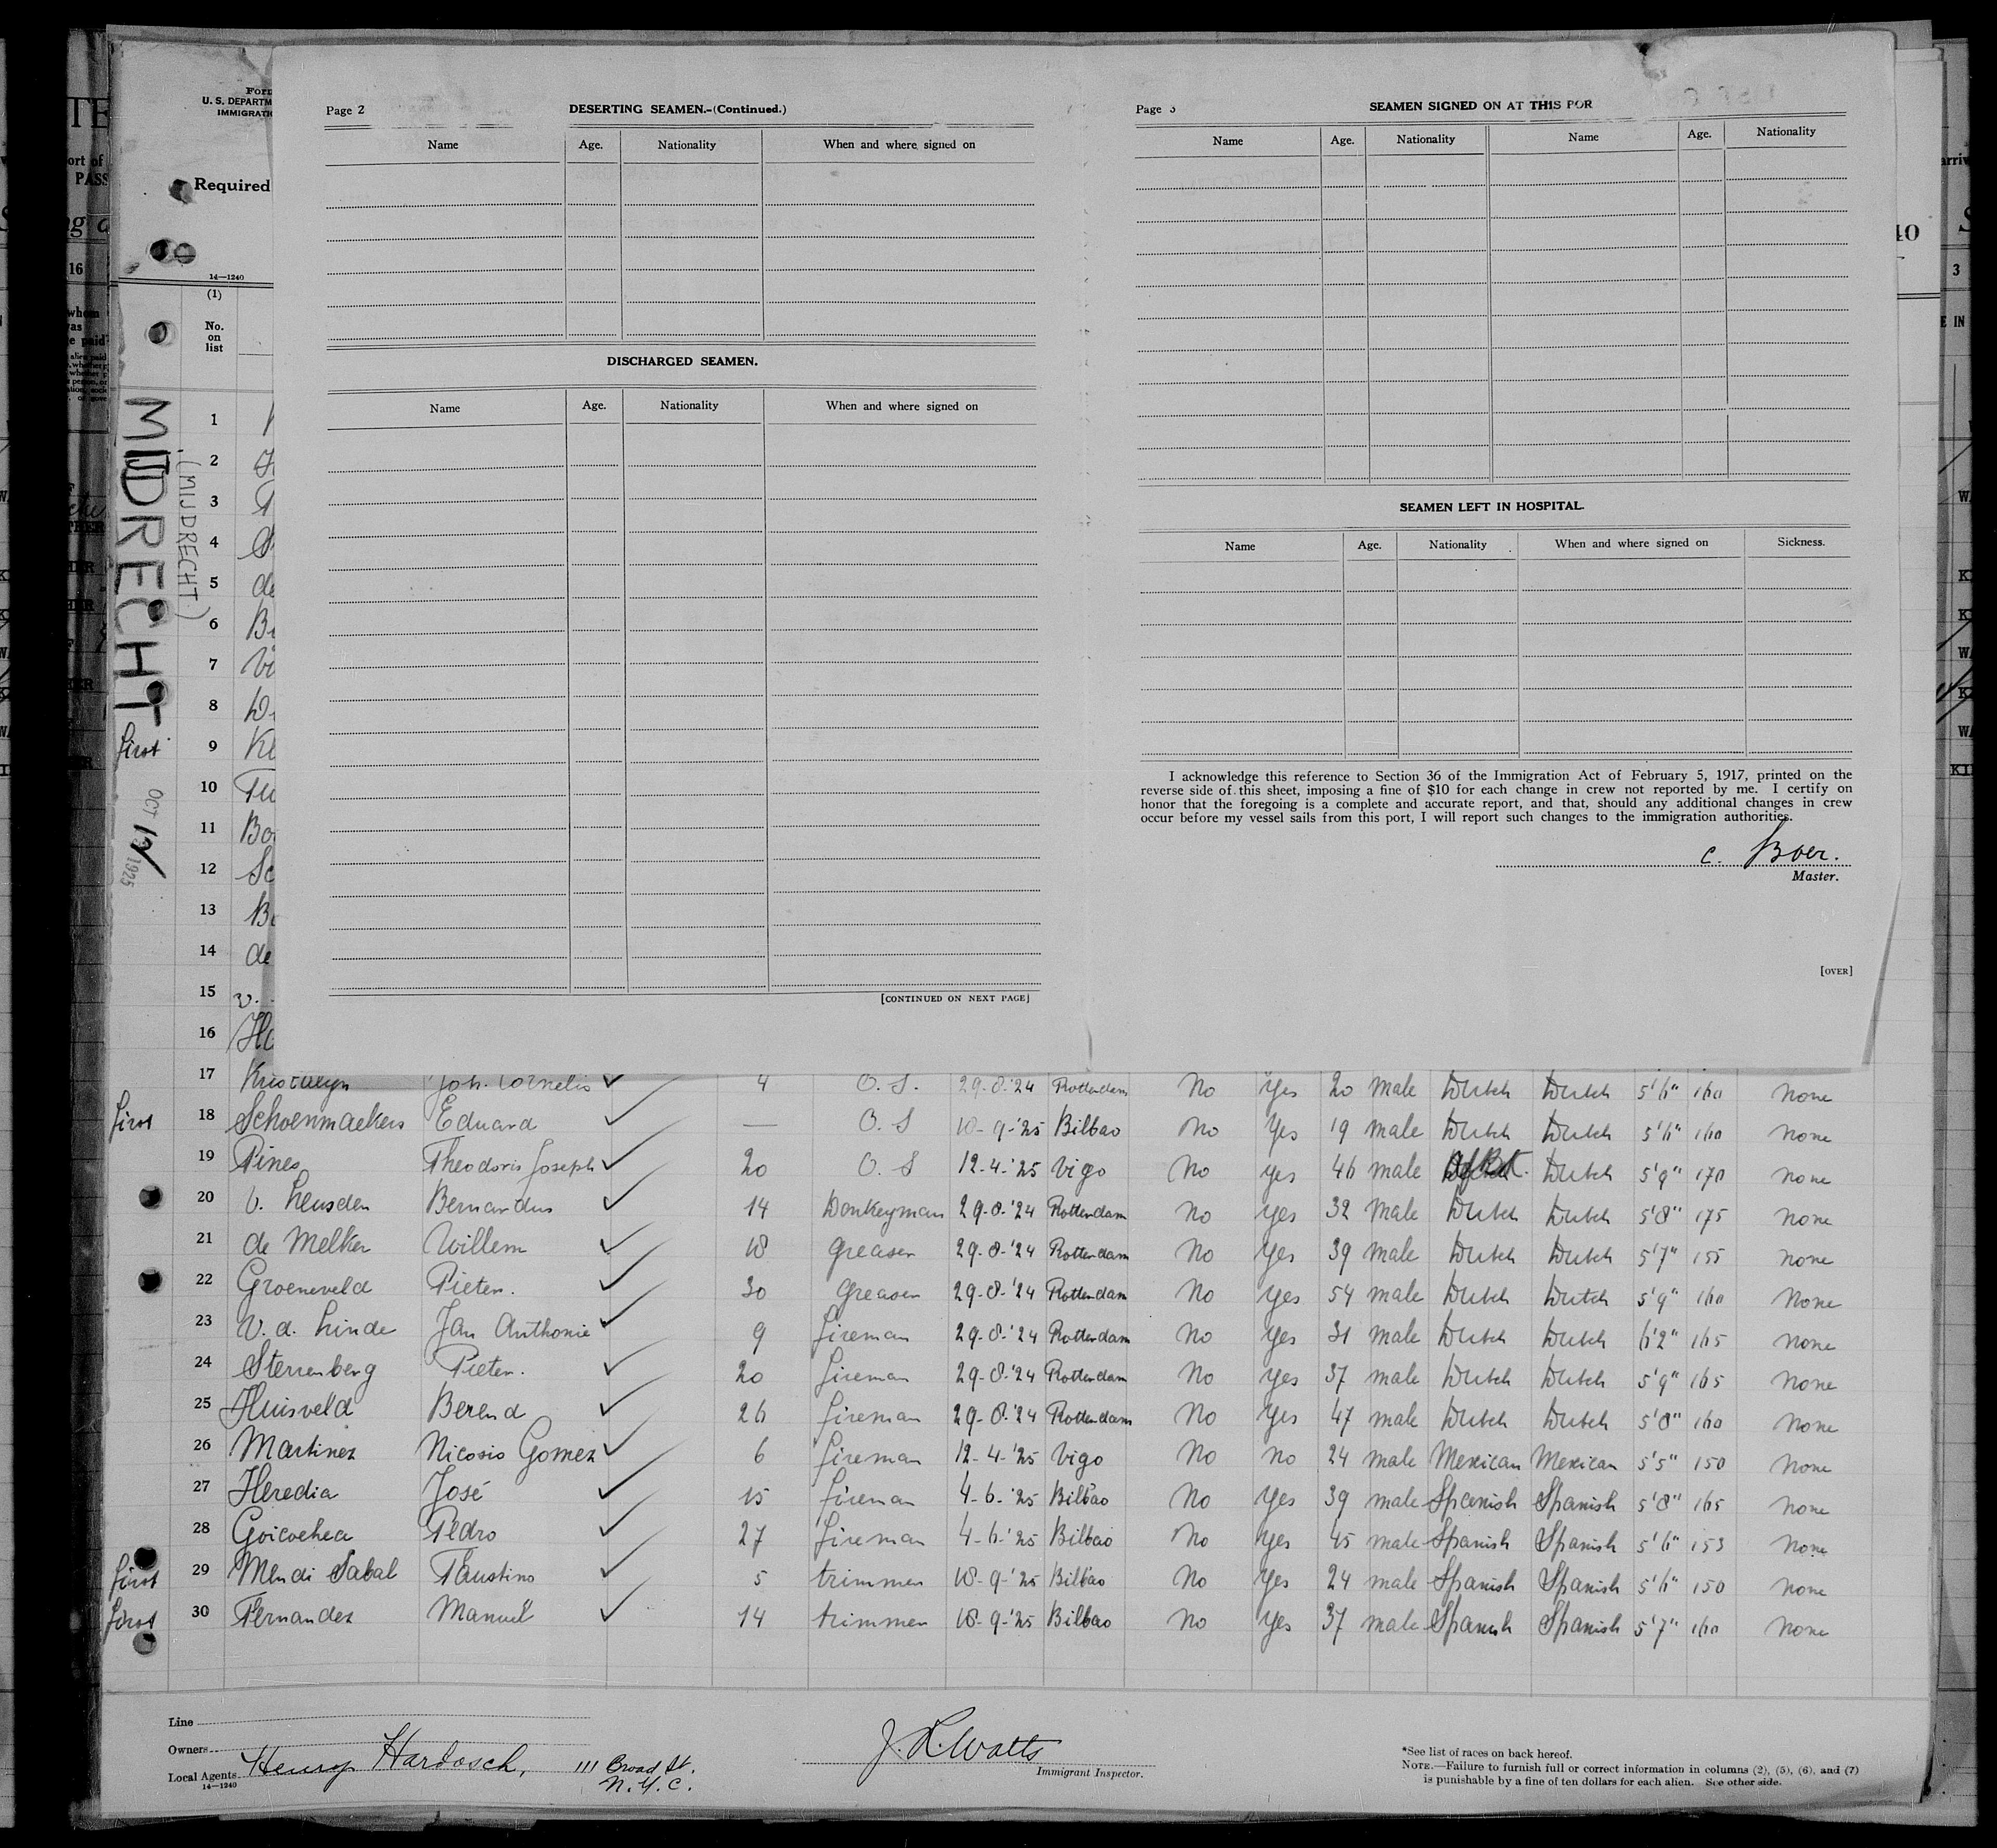 Form
U. S. DEPARTM
IMMIGRATIO
Required
14—1240
(1)
No.
on
list
MIJDRECHT
(MIJDRECHT)
first
OCT 12 1925
Page 2
DESERTING SEAMEN.-(Continued.)
Name Age. Nationality When and where signed on
DISCHARGED SEAMEN.
Name Age. Nationality When and where signed on
[CONTINUED ON NEXT PAGE]
Page 3
SEAMEN SIGNED ON AT THIS POR
Name Age. Nationality Name Age. Nationality
SEAMEN LEFT IN HOSPITAL.
Name Age. Nationality When and where signed on Sickness.
I acknowledge this reference to Section 36 of the Immigration Act of February 5, 1917, printed on the
reverse side of this sheet, imposing a fine of $10 for each change in crew not reported by me. I certify on
honor that the foregoing is a complete and accurate report, and that, should any additional changes in crew
occur before my vessel sails from this port, I will report such changes to the immigration authorities.
C. Boer.
Master.
[OVER]
1
2
3
4
5 de
6
7
8
9
10
11
12
13
14 de
15 v.
16
17 Joh. Cornelis 4 O. S. 29-8-'24 Rotterdam No Yes 20 male Dutch Dutch 5'6" 160 none
first 18 Schoenmackers Eduard — O. S 18-9-'25 Bilbao No Yes 19 male Dutch Dutch 5'6" 160 none
19 Pines Theodoris Joseph 20 O. S 12-4-'25 Vigo No yes 46 male Dutch 5'9" 170 none
20 v. Leusden Bernardus 14 Donkeyman 29-8-'24 Rotterdam No yes 32 male Dutch Dutch 5'8" 175 none
21 de Melker Willem 18 greaser 29-8-'24 Rotterdam No yes 39 male Dutch Dutch 5'7" 155 none
22 Groeneveld Pieter. 30 greaser 29-8-'24 Rotterdam No yes 54 male Dutch Dutch 5'9" 160 None
23 V. d. Linde Jan Anthonie 9 fireman 29-8-'24 Rotterdam No yes 31 male Dutch Dutch 6'2" 165 none
24 Sterrenberg Pieter. 20 fireman 29-8-'24 Rotterdam No yes 37 male Dutch Dutch 5'9" 165 None
25 Huisveld Berend 26 fireman 29-8-'24 Rotterdam No Yes 47 male Dutch Dutch 5'8" 160 none
26 Martinez Nicosio Gomez 6 fireman 12-4-'25 Vigo No no 24 male Mexican Mexican 5'5" 150 None
27 Heredia José 15 fireman 4-6-'25 Bilbao No Yes 39 male Spanish Spanish 5'8" 165 none
28 Goicoehea Pedro 27 fireman 4-6-'25 Bilbao No Yes 45 male Spanish Spanish 5'6" 153 None
first 29 Mendi Sabal Faustino 5 trimmer 18-9-'25 Bilbao No Yes 24 male Spanish Spanish 5'6" 150 none
first 30 Fernandez Manuel 14 trimmer 18-9-'25 Bilbao No Yes 37 male Spanish Spanish 5'7" 160 none
Line
Owners
Local Agents Henry Hardosch, 111 Broad St.
N.Y.C.
14—1240
J. L. Watts
Immigrant Inspector.
*See list of races on back hereof.
NOTE.—Failure to furnish full or correct information in columns (2), (5), (6), and (7)
is punishable by a fine of ten dollars for each alien. See other side.